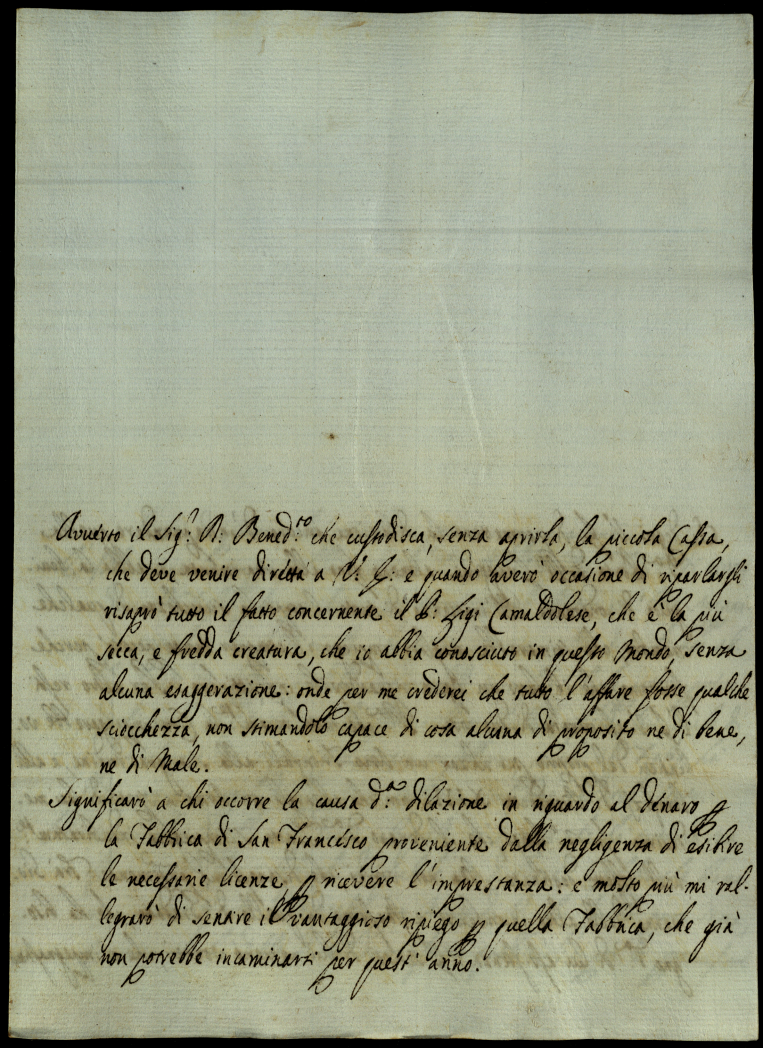 Avverto il Sig.r D: Bened.to che custodisca, senza aprirla, la piccola Cassa,
che deve venire diretta a V: S: e quando averò occasione di riparlargli
risaprò tutto il fatto concernente il P: Ligi Camaldolese, che è la più
secca, e fredda creatura, che io abbia conosciuto in questo Mondo, senza
alcuna esaggerazione: onde per me crederei che tutto l'affare fosse qualche
sciocchezza, non stimandolo capace di cosa alcuna di proposito ne di bene,
ne di Male.
Significarò a chi occorre la causa d.a dilazione in riguardo al denaro p
la Fabbrica di San Francesco proveniente dalla negligenza di esibire
le necessarie licenze p ricevere l'imprestanza: e molto più mi ral-
legrarò di sentire il vantaggioso ripiego p quella Fabbrica, che già
non potrebbe incaminarsi per quest' anno.